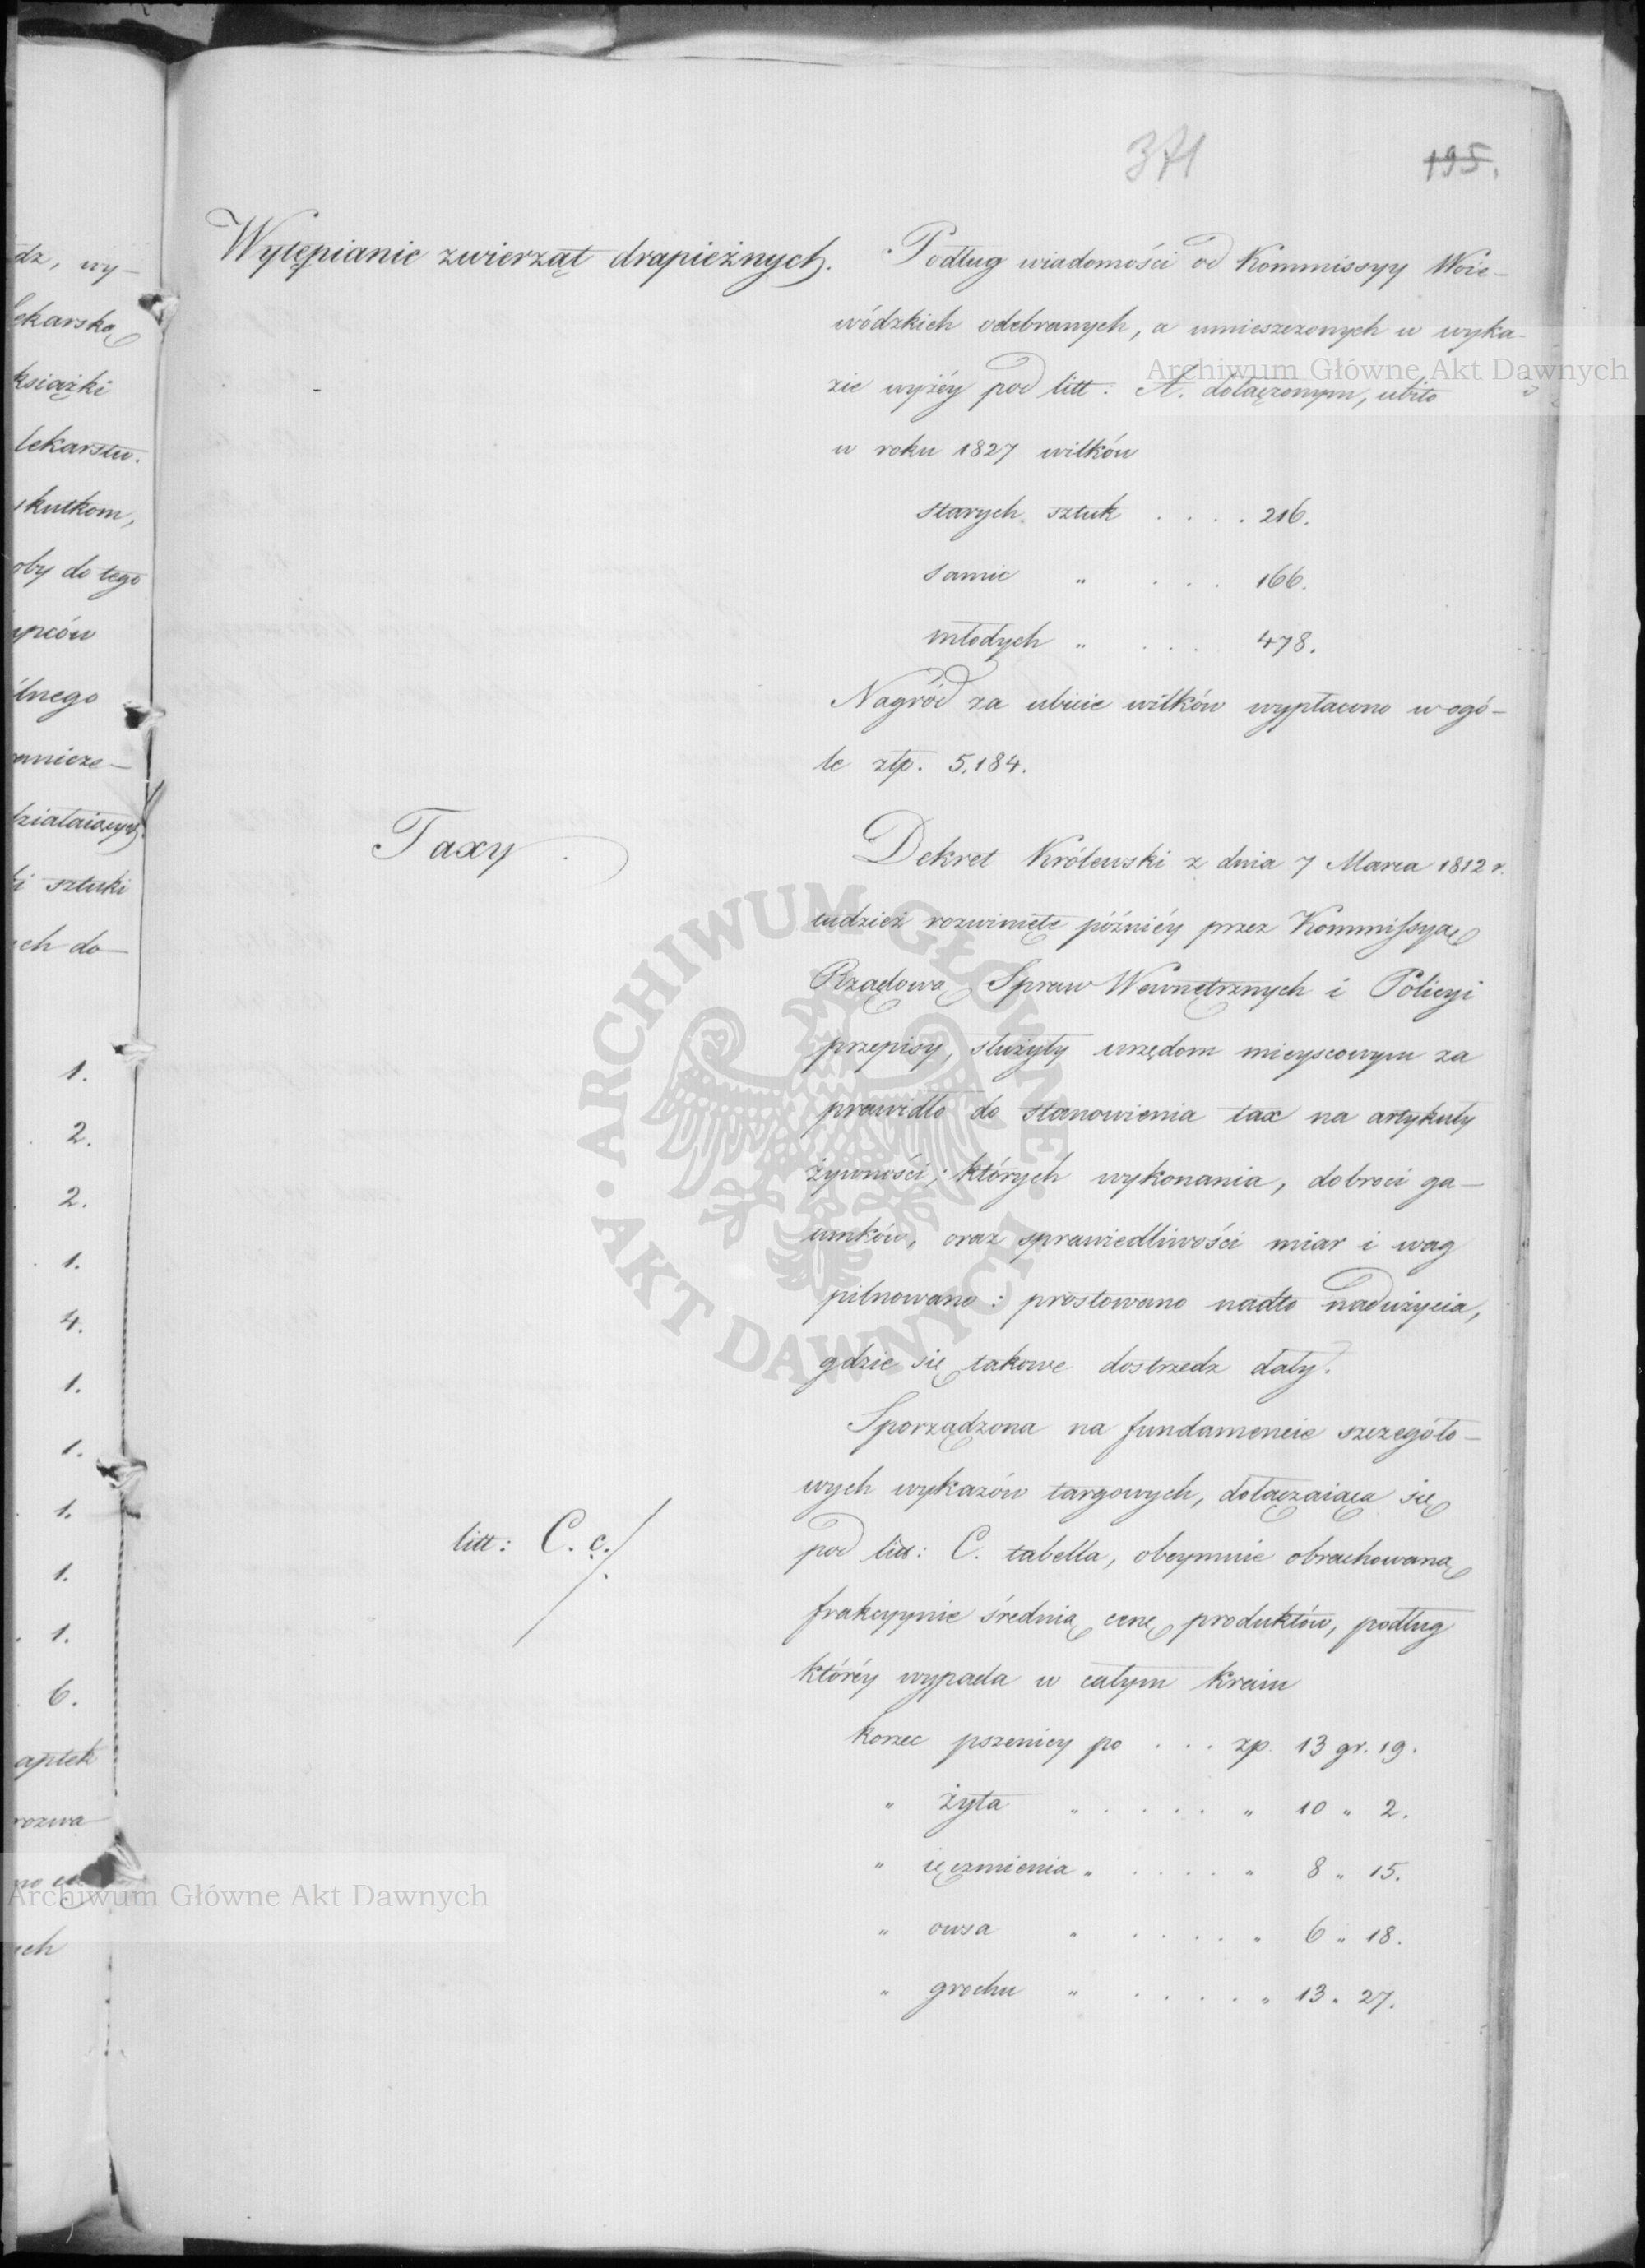 371
195.
Wytępianie zwierząt drapieżnych.
Podług wiadomości od Kommissyy Woie-
wódzkich odebranych, a umieszczonych w wyka-
zie wyżéy pod litt: A. dołączonym, ubito
w roku 1827 wilków
starych sztuk . . . . 216.
samic " . . . 166.
młodych " . . . 478.
Nagród za ubicie wilków wypłacono w ogó-
le złp. 5,184.
Taxy
Dekret Królewski z dnia 7 Marca 1812 r.
tudzież rozwinięte późniéy przez Kommissyą
Rządową Spraw Wewnętrznych i Policyi
przepisy, służyły urzędom mieyscowym za
prawidło do stanowienia tax na artykuły
żywności; których wykonania, dobroci ga-
tunków, oraz sprawiedliwości miar i wag
pilnowano: prostowano nadto nadużycia,
gdzie się takowe dostrzedz dały.
Sporządzona na fundamencie szczegóło-
wych wykazów targowych, dołączaiąca się
litt: C. c.
pod litt: C. tabella, obeymuie obrachowaną
frakcyynie średnią cenę produktów, podług
któréy wypada w całym kraiu
korzec pszenicy po . . . zp. 13 gr. 19.
" żyta " . . . . " 10 " 2.
" ięczmienia " . . . . " 8 " 15.
" owsa " . . . . " 6 " 18.
" grochu " . . . . " 13 " 27.
dz, wy-
lekarską
książki
lekarstw.
skutkom,
oby do tego
upców
lnego
anicze-
działaiących
ki sztuki
ch do-
1.
2.
2.
1.
4.
1.
1.
1.
1.
1.
6.
aptek
rozwa
ch
Archiwum Główne Akt Dawnych
ARCHIWUM GŁÓWNE
AKT DAWNYCH
Archiwum Główne Akt Dawnych